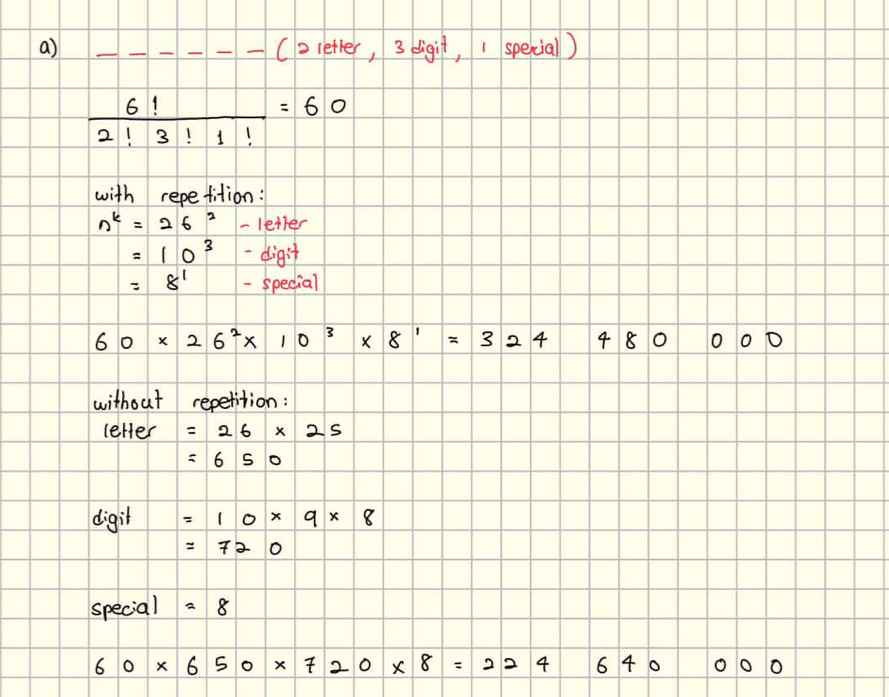 a) _ _ _ _ _ _ ( 2 letter, 3 digit, 1 special )
6! / 2! 3! 1! = 60
with repetition:
n^k = 26² - letter
= 10³ - digit
= 8¹ - special
60 × 26² × 10³ × 8¹ = 324 480 000
without repetition:
letter = 26 × 25
= 650
digit = 10 × 9 × 8
= 720
special = 8
60 × 650 × 720 × 8 = 224 640 000